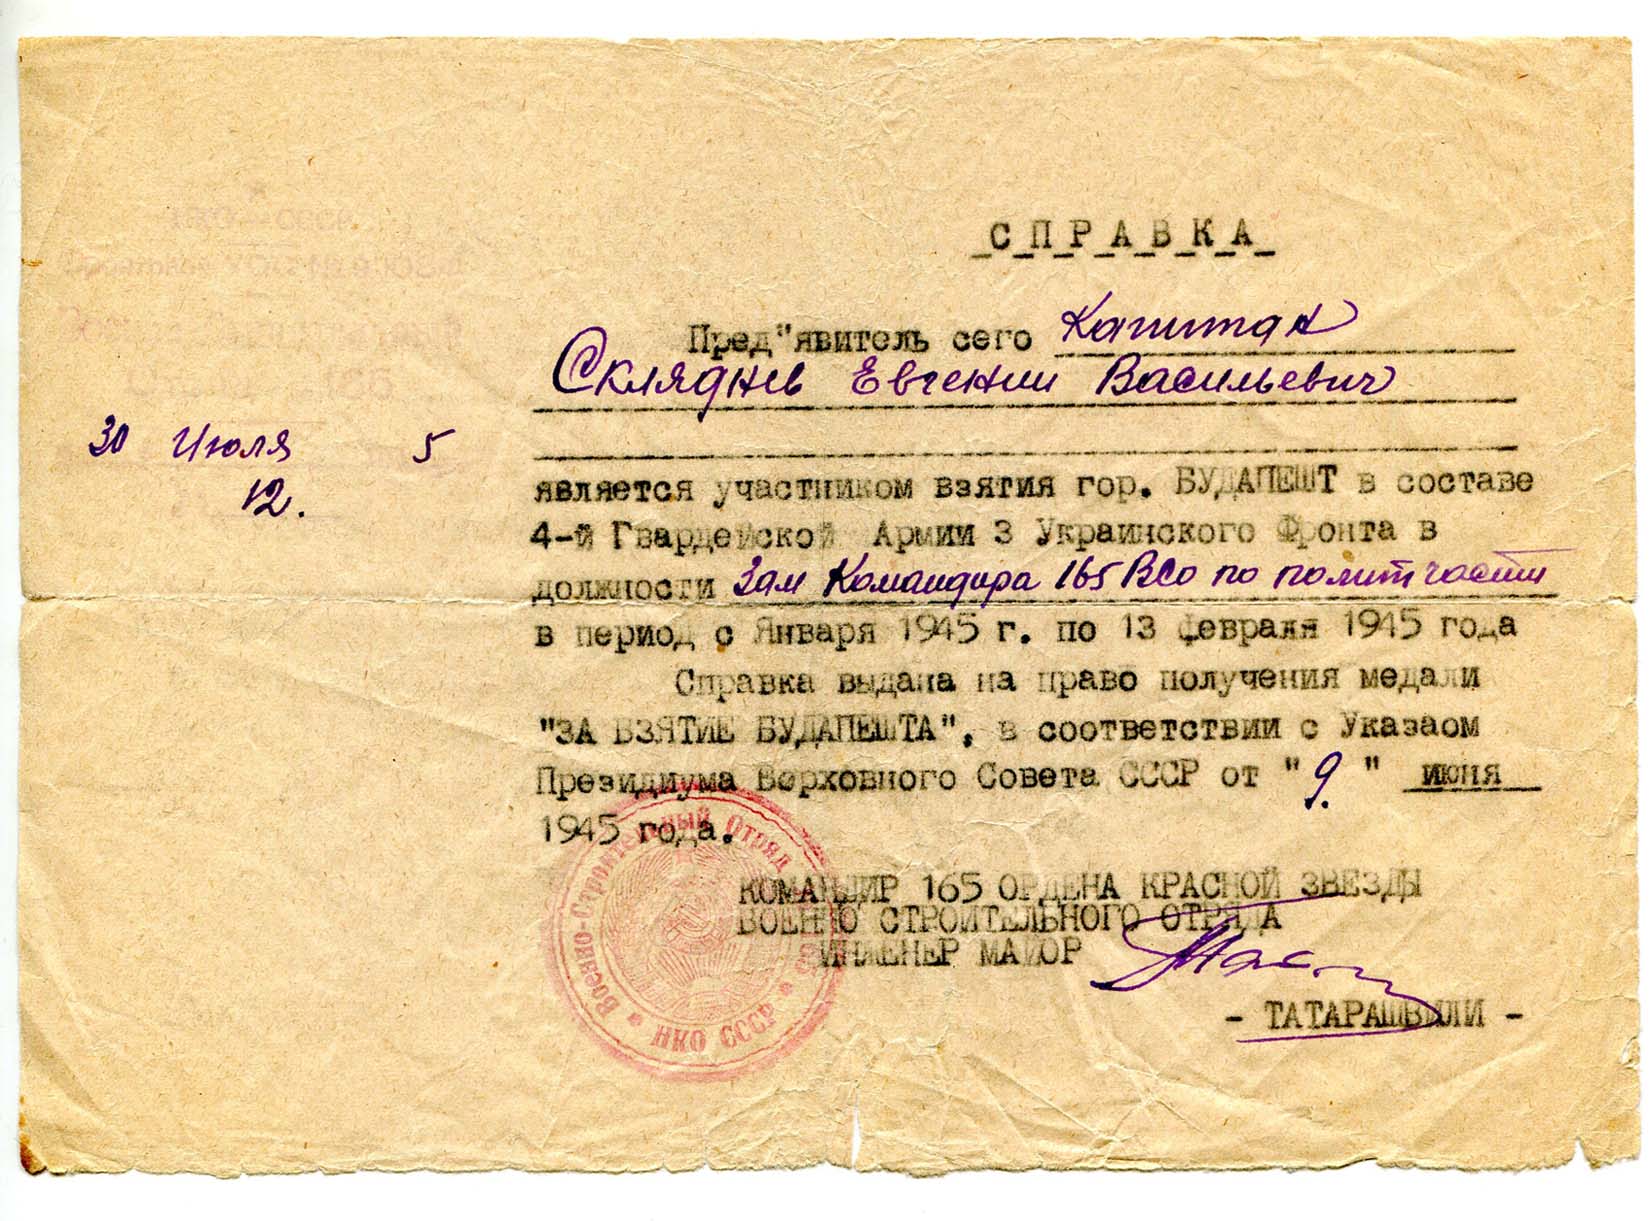 НКО - СССР
30 Июля 5
12.
СПРАВКА
Пред"явитель сего Капитан
Скляднев Евгений Васильевич
является участником взятия гор. БУДАПЕШТ в составе
4-й Гвардейской Армии 3 Украинского Фронта в
должности Зам Командира 165 ВСО по политчасти
в период с Января 1945 г. по 13 февраля 1945 года
Справка выдана на право получения медали
"ЗА ВЗЯТИЕ БУДАПЕШТА", в соответствии с Указаом
Президиума Верховного Совета СССР от "9." июня
1945 года.
КОМАНДИР 165 ОРДЕНА КРАСНОЙ ЗВЕЗДЫ
ВОЕННО СТРОИТЕЛЬНОГО ОТРЯДА
ИНЖЕНЕР МАЙОР
- ТАТАРАШВИЛИ -
Военно-Строительный Отряд
НКО СССР